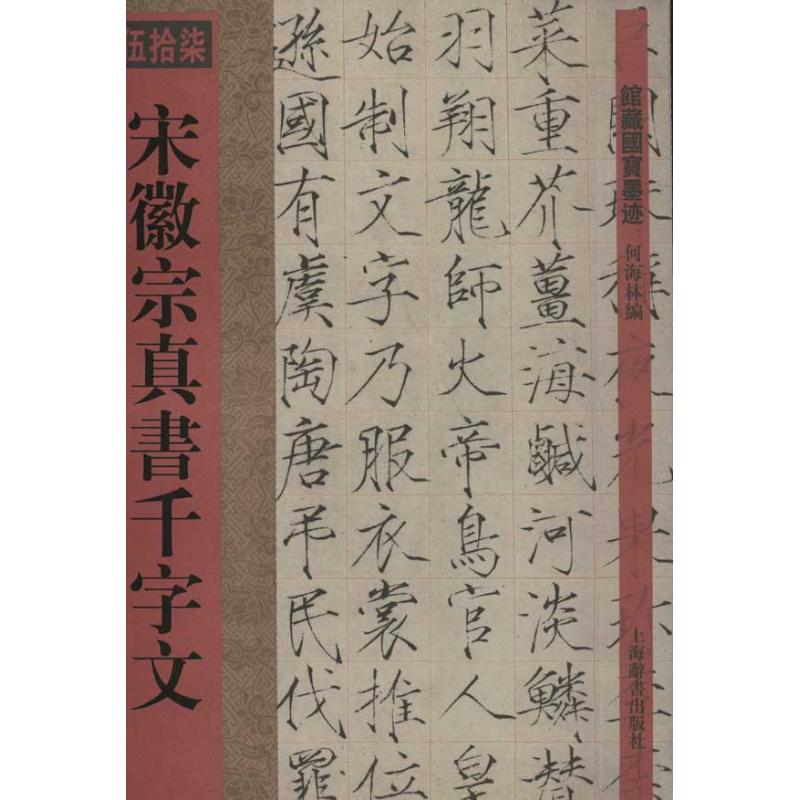 館藏國寶墨迹
何海林編
上海辭書出版社
夜光果
菜重芥薑海鹹河淡鱗潛
羽翔龍師火帝鳥官人皇
始制文字乃服衣裳推位
遜國有虞陶唐弔民伐罪
伍拾柒
宋徽宗真書千字文